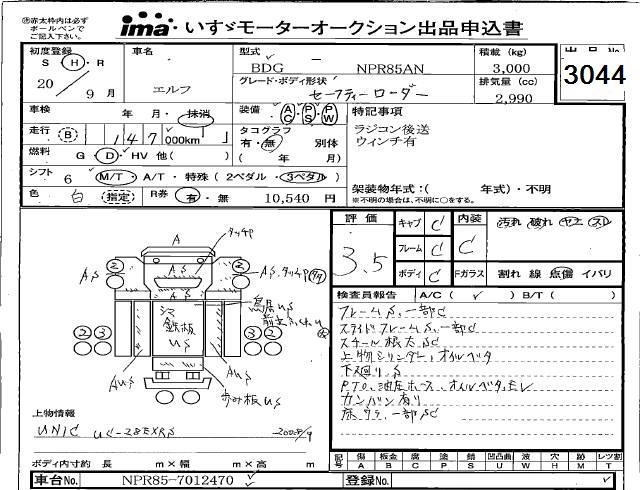 ㊟赤太枠内は必ず
ボールペンで
ご記入下さい。
ima いすゞモーターオークション出品申込書
初度登録 車名 型式 積載 (kg) 出品No
S H・R エルフ BDG NPR85AN 3,000 3044
20 9 月 グレード・ボディ形状 排気量 (cc)
セーフティーローダー 2,990
車検 年 月・抹消 装備 AC PS PW 特記事項
走行 B 147 000km タコグラフ 有・無 別体 ラジコン後送
( 年 月) ウィンチ有
燃料 G・D・HV 他( )
シフト 6 M/T・A/T・特殊 (2ペダル・3ペダル) 架装物年式:( 年式)・不明
色 白 指定 R券 有・無 10,540 円 ※不明の場合は、不明に○をする。
評価 キャブ C 内装 汚れ 破れ ヤケ スレ
3.5 フレーム C C
ボディ C Fガラス 割れ 線 飛傷 イバリ
検査員報告 A/C ( ✓ ) B/T ( )
フレームS、一部C
スライドフレームS、一部C
スチール根太SC
上物シリンダー、オイルベタ
下廻りS
PTO、油圧ホース、オイルベタ、モレ
カンバン有り
床ウラ、一部SC
A
タッチP
AS
AS
AS
AS、タッチP
鳥居US
シマ
鉄板
US
AUS
AUS
あゆみ板US
上物情報
UNIC UC-28EXRS 2008/9
ボディ内寸約 長 m×幅 m×高 m
記号 傷 板金 腐 塗 錆 凹凸曲 波 穴 跡 レツ割
A B C P S U W H M T
車台No. NPR85-7012470 登録No.